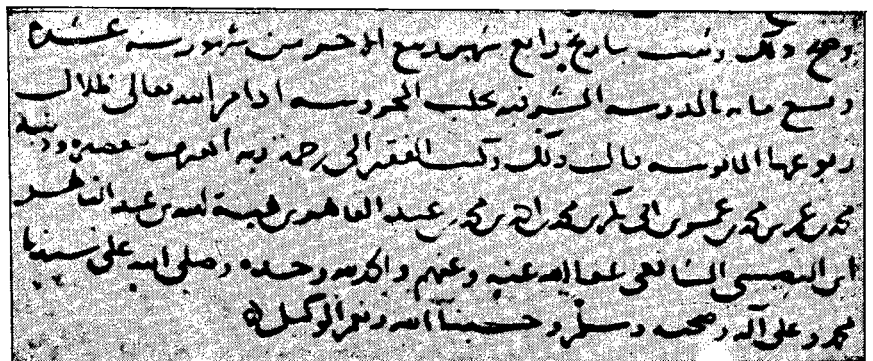 وصح ذلك وثبت بتاريخ رابع شهر ربيع الاخر من شهور سنه عشره
وتسع مايه بالمدرسه الشرفيه بحلب المحروسه ادام الله تعالى ظلال
ربوعها المانوسه قال ذلك وكتب الفقير الى رحمة ربه المعترف بعصره وذنبه
محمد بن عمر بن محمد بن عمر بن ابي بكر بن محمد بن احمد بن محمد بن عبد القاهر بن هبة الله بن عبد القاهر
ابن النصيبي الشافعي عفا الله عنه وعنهم والحمد لله وحده وصلى الله على سيدنا
محمد وعلى آله وصحبه وسلم وحسبنا الله ونعم الوكيل